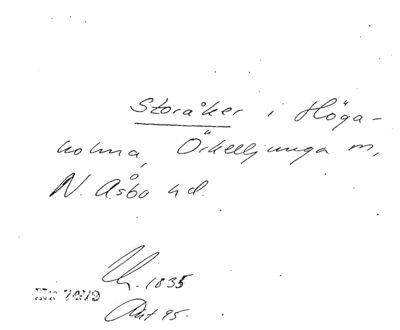 Storåker i Höga-
holma, Örkelljunga sn,
N. Åsbo hd.
1835
Akt 95.